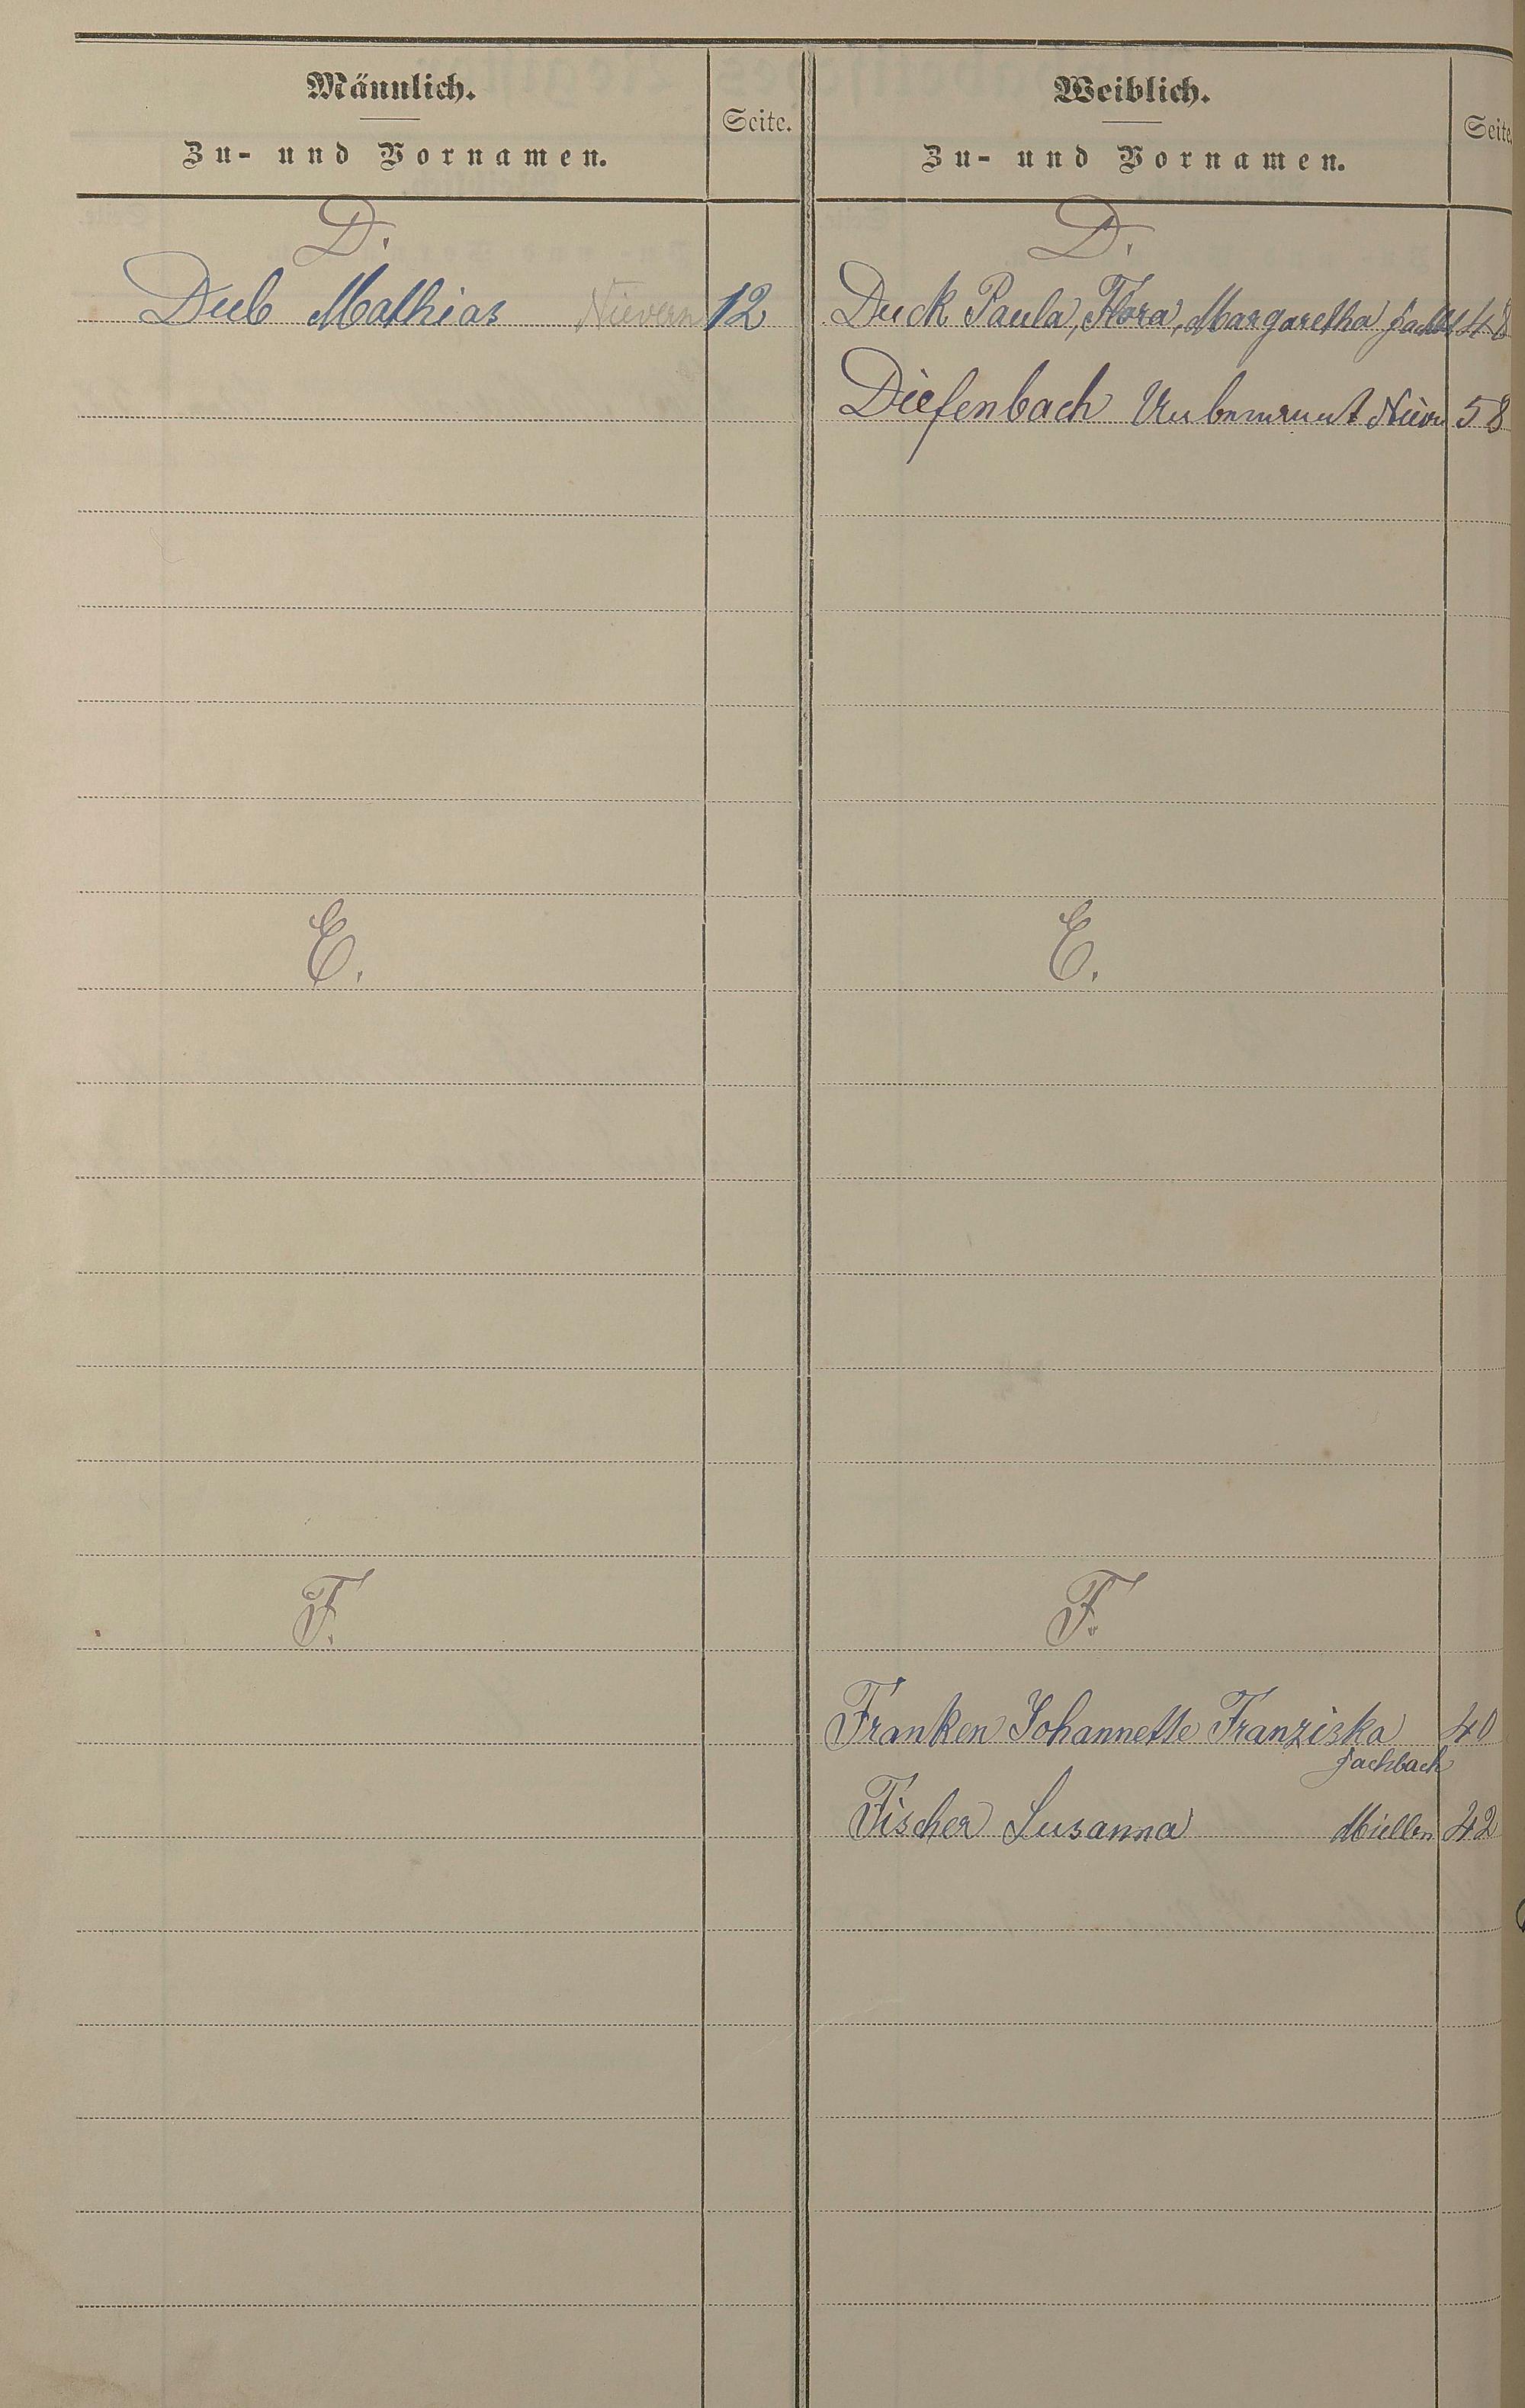 Männlich.
Zu- und Vornamen.
Seite.
Weiblich.
Zu- und Vornamen.
Seite
D.
D.
Deeb Mathias Nievern 12
Duck Paula, Flora, Margaretha Fachb 48
Diefenbach Unbenannt Nievn 58
E.
E.
F.
F.
Franken Johannette Franziska 40
Fachbach
Fischer Susanna Miellen 42